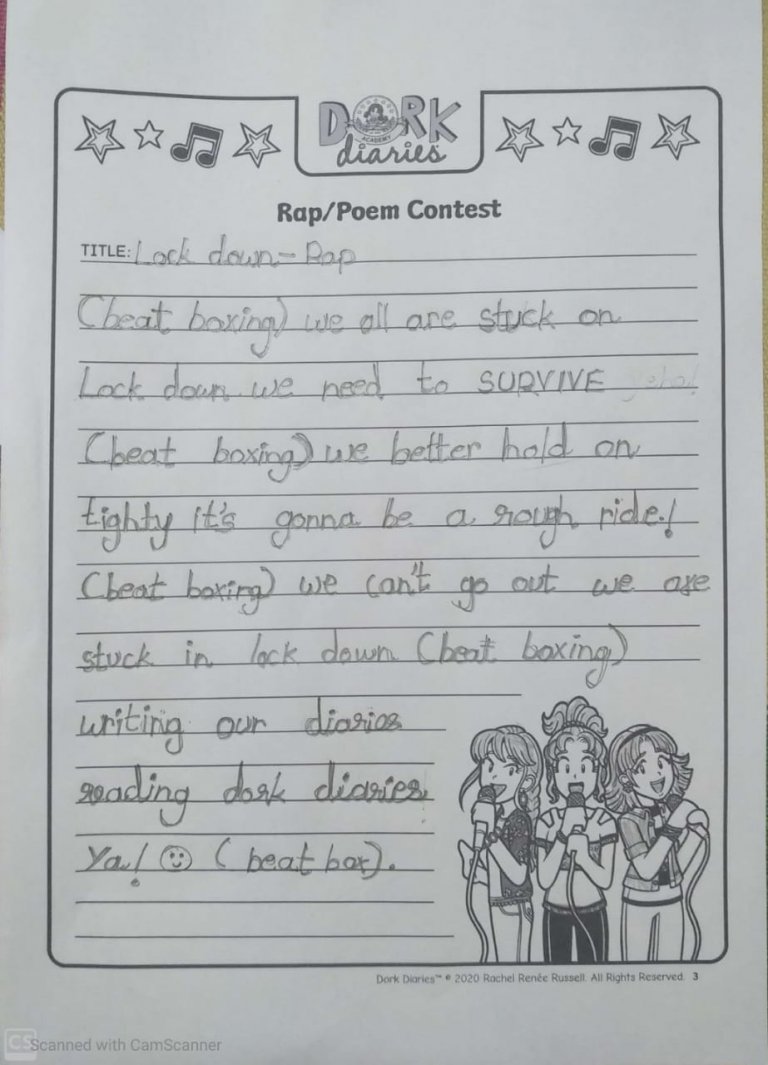 DORK
ACADEMY
diaries
Rap/Poem Contest
TITLE: Lock down - Rap
(beat boxing) we all are stuck on
Lock down we need to SURVIVE
(beat boxing) we better hold on
tighty it's gonna be a rough ride.!
(beat boxing) we can't go out we are
stuck in lock down (beat boxing)
writing our diaries
reading dork diaries
Ya! ☺ (beat box).
Dork Diaries™ © 2020 Rachel Renée Russell. All Rights Reserved. 3
CS Scanned with CamScanner